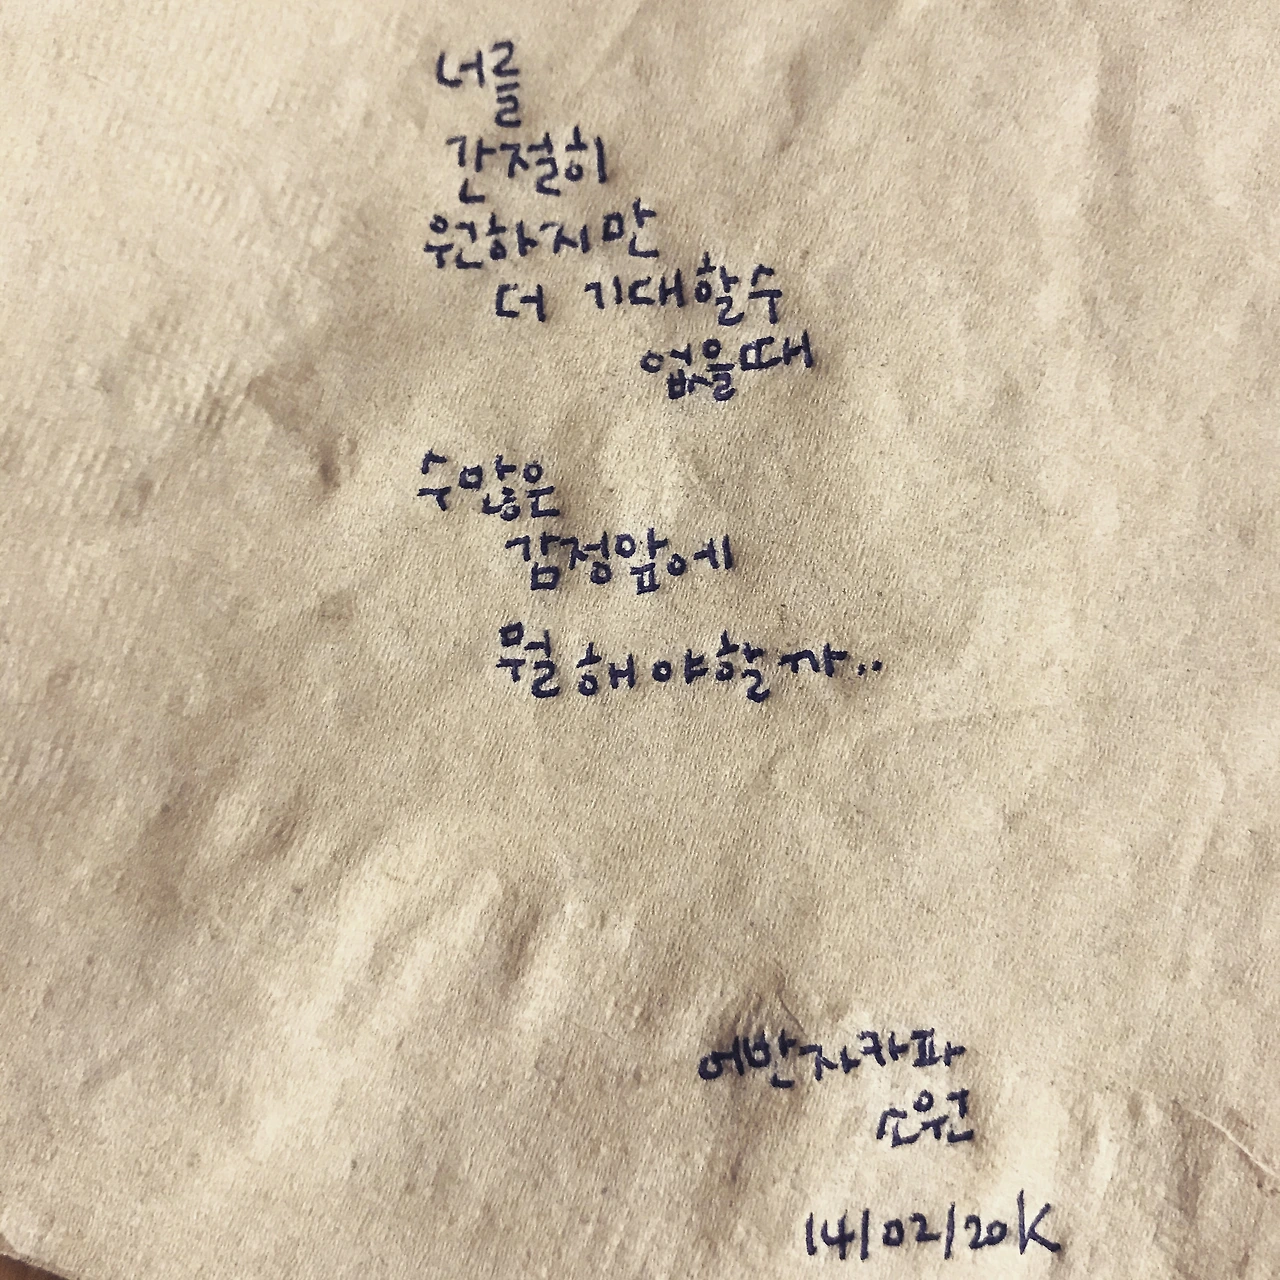 너를
간절히
원하지만
더 기대할수
없을때
수많은
감정앞에
뭘해야할까..
어반자카파
소원
14/02/20K